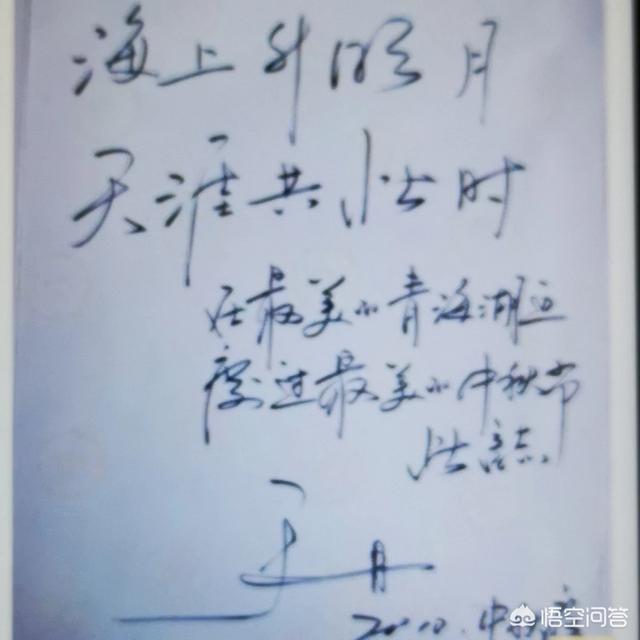 海上升明月
天涯共此时
在最美的青海湖边
度过最美的中秋节
此誌
于丹
2010.中秋
悟空问答